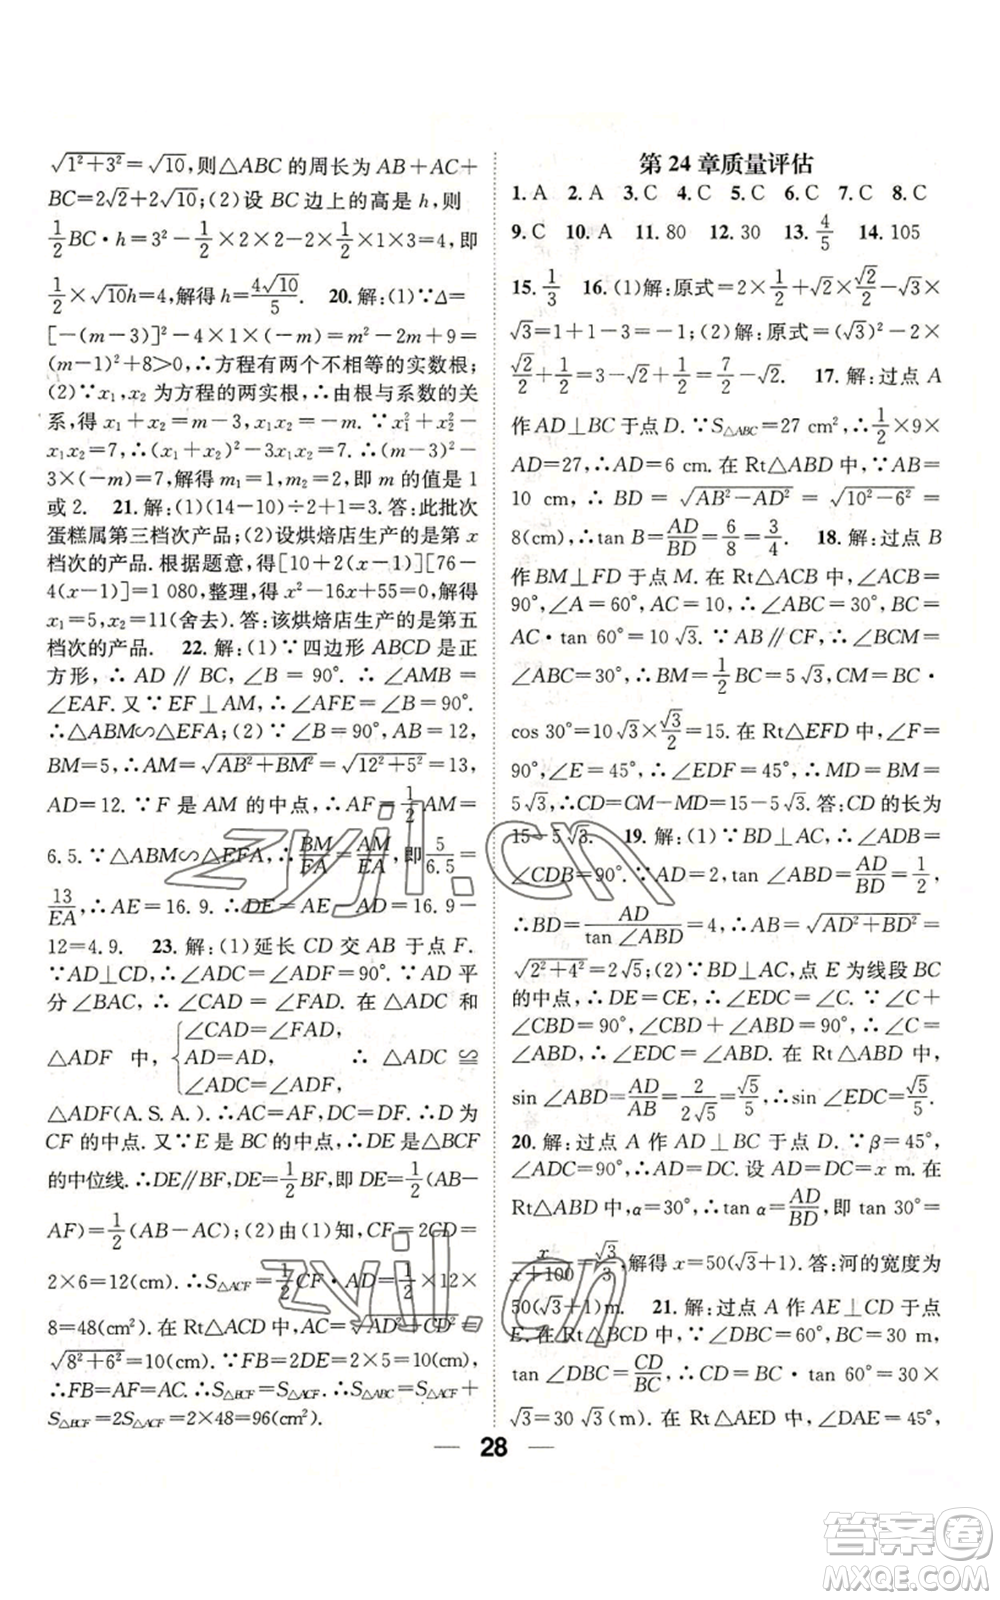 √(1²+3²)=√10,则△ABC的周长为AB+AC+
BC=2√2+2√10;(2)设BC边上的高是h,则
1/2 BC·h=3²-1/2×2×2-1/2×1×3=4,即
1/2×√10h=4,解得h=4√10/5. 20.解:(1)∵Δ=
[-(m-3)]²-4×1×(-m)=m²-2m+9=
(m-1)²+8>0,∴方程有两个不相等的实数根;
(2)∵x₁,x₂为方程的两实根,∴由根与系数的关
系,得x₁+x₂=m-3,x₁x₂=-m.∵x₁²+x₂²-
x₁x₂=7,∴(x₁+x₂)²-3x₁x₂=7,即(m-3)²-
3×(-m)=7,解得m₁=1,m₂=2,即m的值是1
或2. 21.解:(1)(14-10)÷2+1=3.答:此批次
蛋糕属第三档次产品;(2)设烘焙店生产的是第x
档次的产品.根据题意,得[10+2(x-1)][76-
4(x-1)]=1 080,整理,得x²-16x+55=0,解得
x₁=5,x₂=11(舍去).答:该烘焙店生产的是第五
档次的产品. 22.解:(1)∵四边形ABCD是正
方形,∴AD∥BC,∠B=90°.∴∠AMB=
∠EAF.又∵EF⊥AM,∴∠AFE=∠B=90°.
∴△ABM∽△EFA;(2)∵∠B=90°,AB=12,
BM=5,∴AM=√(AB²+BM²)=√(12²+5²)=13,
AD=12.∵F是AM的中点,∴AF=1/2 AM=
6.5.∵△ABM∽△EFA,∴BM/FA=AM/EA,即5/6.5=
13/EA,∴AE=16.9.∴DE=AE-AD=16.9-
12=4.9. 23.解:(1)延长CD交AB于点F.
∵AD⊥CD,∴∠ADC=∠ADF=90°.∵AD平
分∠BAC,∴∠CAD=∠FAD.在△ADC和
∠CAD=∠FAD,
△ADF中,{AD=AD, ∴△ADC≌
∠ADC=∠ADF,
△ADF(A.S.A.).∴AC=AF,DC=DF.∴D是
CF的中点.又∵E是BC的中点,∴DE是△BCF
的中位线.∴DE∥BF,DE=1/2 BF,即DE=1/2(AB-
AF)=1/2(AB-AC);(2)由(1)知,CF=2CD=
2×6=12(cm).∴S△ACF=1/2 CF·AD=1/2×12×
8=48(cm²).在Rt△ACD中,AC=√(AD²+CD²)=
√(8²+6²)=10(cm).∵FB=2DE=2×5=10(cm),
∴FB=AF=AC.∴S△BCF=S△ACF.∴S△ABC=S△ACF+
S△BCF=2S△ACF=2×48=96(cm²).
第24章质量评估
1.A 2.A 3.C 4.C 5.C 6.C 7.C 8.C
9.C 10.A 11.80 12.30 13.4/5 14.105
15.1/3 16.(1)解:原式=2×1/2+√2×√2/2-√3×
√3=1+1-3=-1;(2)解:原式=(√3)²-2×
√2/2+1/2=3-√2+1/2=7/2-√2. 17.解:过点A
作AD⊥BC于点D.∵S△ABC=27 cm²,∴1/2×9×
AD=27,∴AD=6 cm.在Rt△ABD中,∵AB=
10 cm,∴BD=√(AB²-AD²)=√(10²-6²)=
8(cm),∴tan B=AD/BD=6/8=3/4. 18.解:过点B
作BM⊥FD于点M.在Rt△ACB中,∠ACB=
90°,∠A=60°,AC=10,∴∠ABC=30°,BC=
AC·tan 60°=10√3.∵AB∥CF,∴∠BCM=
∠ABC=30°.∴BM=1/2 BC=5√3,CM=BC·
cos 30°=10√3×√3/2=15.在Rt△EFD中,∠F=
90°,∠E=45°,∴∠EDF=45°,∴MD=BM=
5√3.∴CD=CM-MD=15-5√3.答:CD的长为
15-5√3. 19.解:(1)∵BD⊥AC,∴∠ADB=
∠CDB=90°.∵AD=2,tan∠ABD=AD/BD=1/2,
∴BD=AD/tan∠ABD=4,∴AB=√(AD²+BD²)=
√(2²+4²)=2√5;(2)∵BD⊥AC,点E为线段BC
的中点,∴DE=CE,∴∠EDC=∠C.∵∠C+
∠CBD=90°,∠CBD+∠ABD=90°,∴∠C=
∠ABD,∴∠EDC=∠ABD.在Rt△ABD中,
sin∠ABD=AD/AB=2/2√5=√5/5,∴sin∠EDC=√5/5.
20.解:过点A作AD⊥BC于点D.∵β=45°,
∠ADC=90°,∴AD=DC.设AD=DC=x m.在
Rt△ABD中,α=30°,∴tan α=AD/BD,即tan 30°=
x/(x+100)=√3/3,解得x=50(√3+1).答:河的宽度为
50(√3+1)m. 21.解:过点A作AE⊥CD于点
E.在Rt△BCD中,∵∠DBC=60°,BC=30 m,
tan∠DBC=CD/BC,∴CD=BC·tan 60°=30×
√3=30√3(m).在Rt△AED中,∠DAE=45°,
28
zyjl.cn
zyjl.cn
答案卷
MXQE.COM